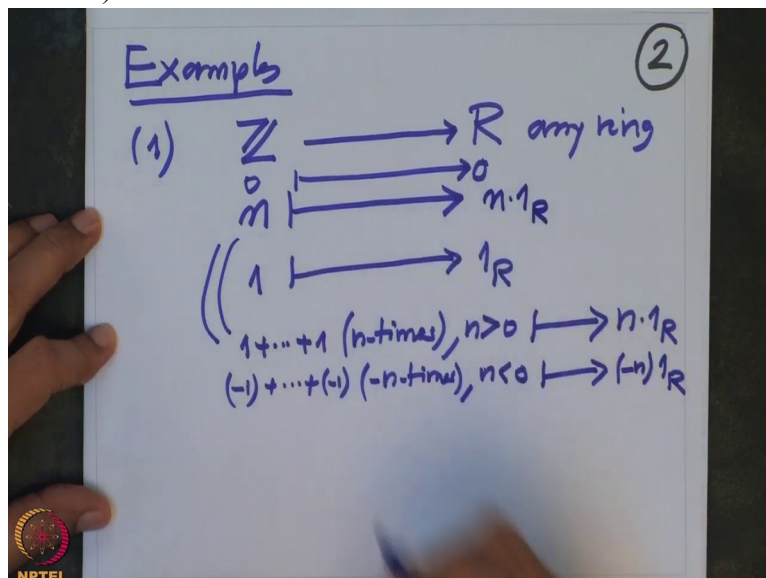 Examples
2
(1) ℤ ⟶ R any ring
0 ⟼ 0
n ⟼ n·1_R
1 ⟼ 1_R
1+···+1 (n-times), n>0 ⟼ n·1_R
(-1)+···+(-1) (-n-times), n<0 ⟼ (-n)1_R
NPTEL